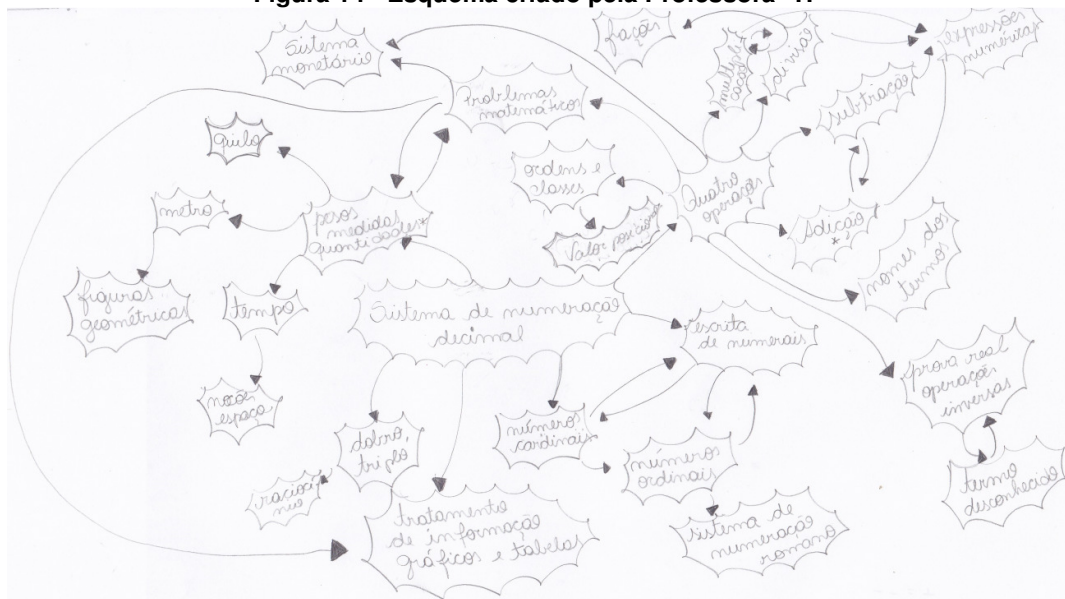 Sistema
monetário
fração
multipli
cação
divisão
expressões
numéricas
Problemas
matemáticos
subtração
quilo
ordens e
classes
Quatro
operações
metro
pesos
medidas
quantidades*
Valor posicional
Adição
*
nomes dos
termos
figuras
geométricas
tempo
Sistema de numeração
decimal
escrita
de numerais
prova real
operação
inversas
noções
espaço
dobro,
triplo
números
cardinais
números
ordinais
termo
desconhecido
raciocí
nio
tratamento
de informação
gráficos e tabelas
sistema de
numeração
romano